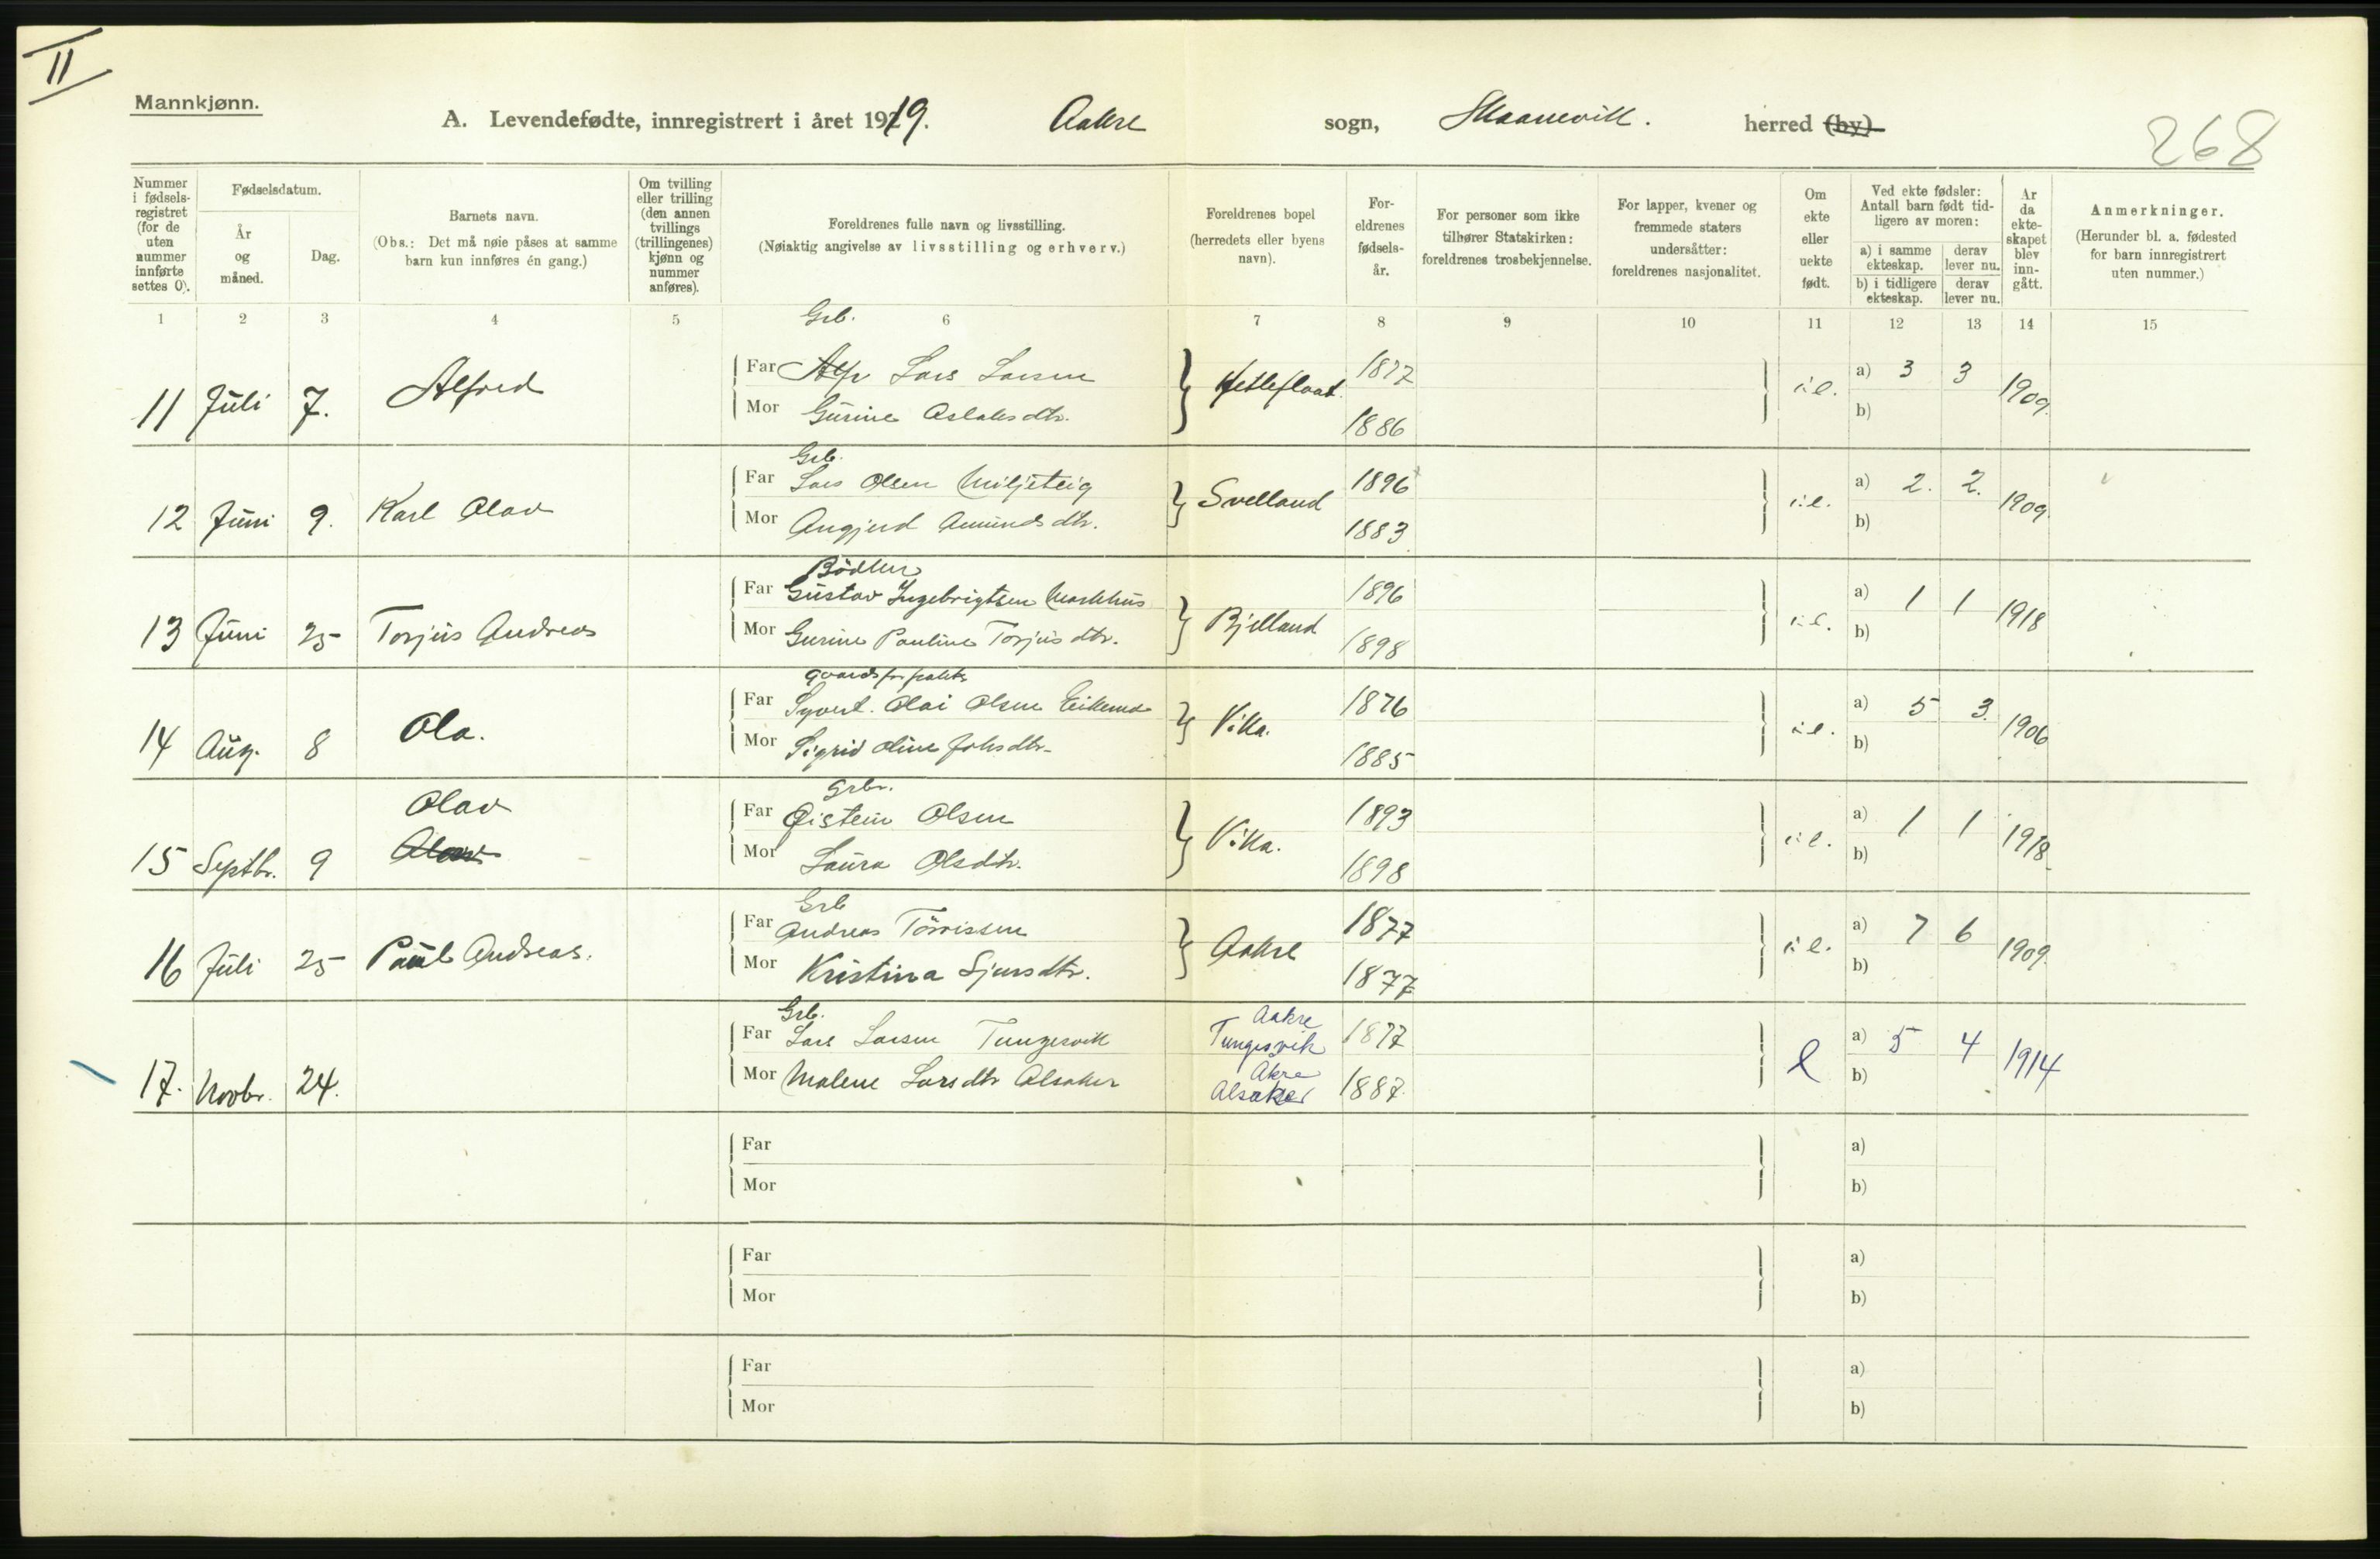 II
Mannkjønn.
A. Levendefødte, innregistrert i året 1919. Aakre sogn, Skaanevik. herred (by)
268
Nummer i fødsels-registret (for de uten nummer innførte settes 0).
Fødselsdatum.
År og måned.
Dag.
Barnets navn.
(Obs.: Det må nøie påses at samme barn kun innføres én gang.)
Om tvilling eller trilling (den annen tvillings (trillingenes) kjønn og nummer anføres).
Foreldrenes fulle navn og livsstilling.
(Nøiaktig angivelse av livsstilling og erhverv.)
Foreldrenes bopel (herredets eller byens navn).
For-eldrenes fødsels-år.
For personer som ikke tilhører Statskirken: foreldrenes trosbekjennelse.
For lapper, kvener og fremmede staters undersåtter: foreldrenes nasjonalitet.
Om ekte eller uekte født.
Ved ekte fødsler: Antall barn født tid-ligere av moren:
a) i samme ekteskap.
derav lever nu.
b) i tidligere ekteskap.
derav lever nu.
År da ekte-skapet blev inn-gått.
Anmerkninger.
(Herunder bl. a. fødested for barn innregistrert uten nummer.)
1 2 3 4 5 6 7 8 9 10 11 12 13 14 15
Grb.
Far Lars Larsen 1877 a) 3 3
11 Juli 7. Alfred Ketleflaat. 1909.
Mor Gurine Aslaksdtr. 1886 b)
Grb.
Far Lars Olsen Miljeteig 1896 a) 2. 2.
12 Juni 9. Karl Olav Svelland 1909.
Mor Angjerd Amundsdtr. 1883 b)
Bödker
Far Gustav Ingebrigtsen Markhus 1896 a) 1 1
13 Juni 25 Torjus Andreas Bjelland 1918
Mor Gurine Pauline Torjusdtr. 1898 b)
Far Syvert Olai Olsen 1876 a) 5 3
14 Aug. 8 Ola. Vika. 1906
Mor Sigrid Oline Johsdtr. 1885 b)
Grbr.
Far Øistein Olsen 1893 a) 1 1
15 Septbr. 9 Olav Vika. 1918
Mor Laura Olsdtr. 1898 b)
Grb
Far Andreas Törrissen 1877 a) 7 6
16 Juli 25 Paul Andreas. Aakre 1909.
Mor Kristina Sjursdtr. 1877 b)
Grb.
Far Lars Larsen Tungesvik Aakre Tungesvik 1877 a) 5 4
17. Novbr. 24. 1914
Mor Malene Larsdtr Alsaker Akre Alsaker 1887. b)
Far a)
Mor b)
Far a)
Mor b)
Far a)
Mor b)